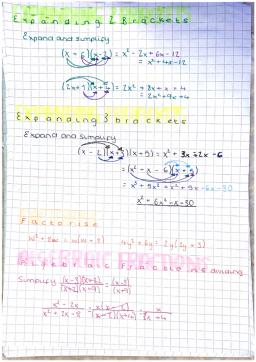 Expanding 2 Brackets
Expand and simplify
(x + 6)(x-2) = x² - 2x + 6x - 12
= x² + 4x - 12
(2x+1)(x+4) = 2x² + 8x + x + 4
= 2x² + 9x + 4
Expanding 3 brackets
Expand and simplify
(x - 2)(x+3)(x+5) = x² + 3x + 2x - 6
= (x² - x - 6)(x+5)
= x³ + 5x² + x² + 5x - 6x - 30
x³ + 6x² - x + 30
Factorise
w² + 8w = w(w + 8)   4y² + 6y = 2y(2y + 3)
ALGEBRAIC FRACTIONS
Algebraic Fractions
Simplify (x-3)(x+2) / (x+2)(x+9) = (x-3) / (x+9)
x² - 2x / x² + 2x - 8